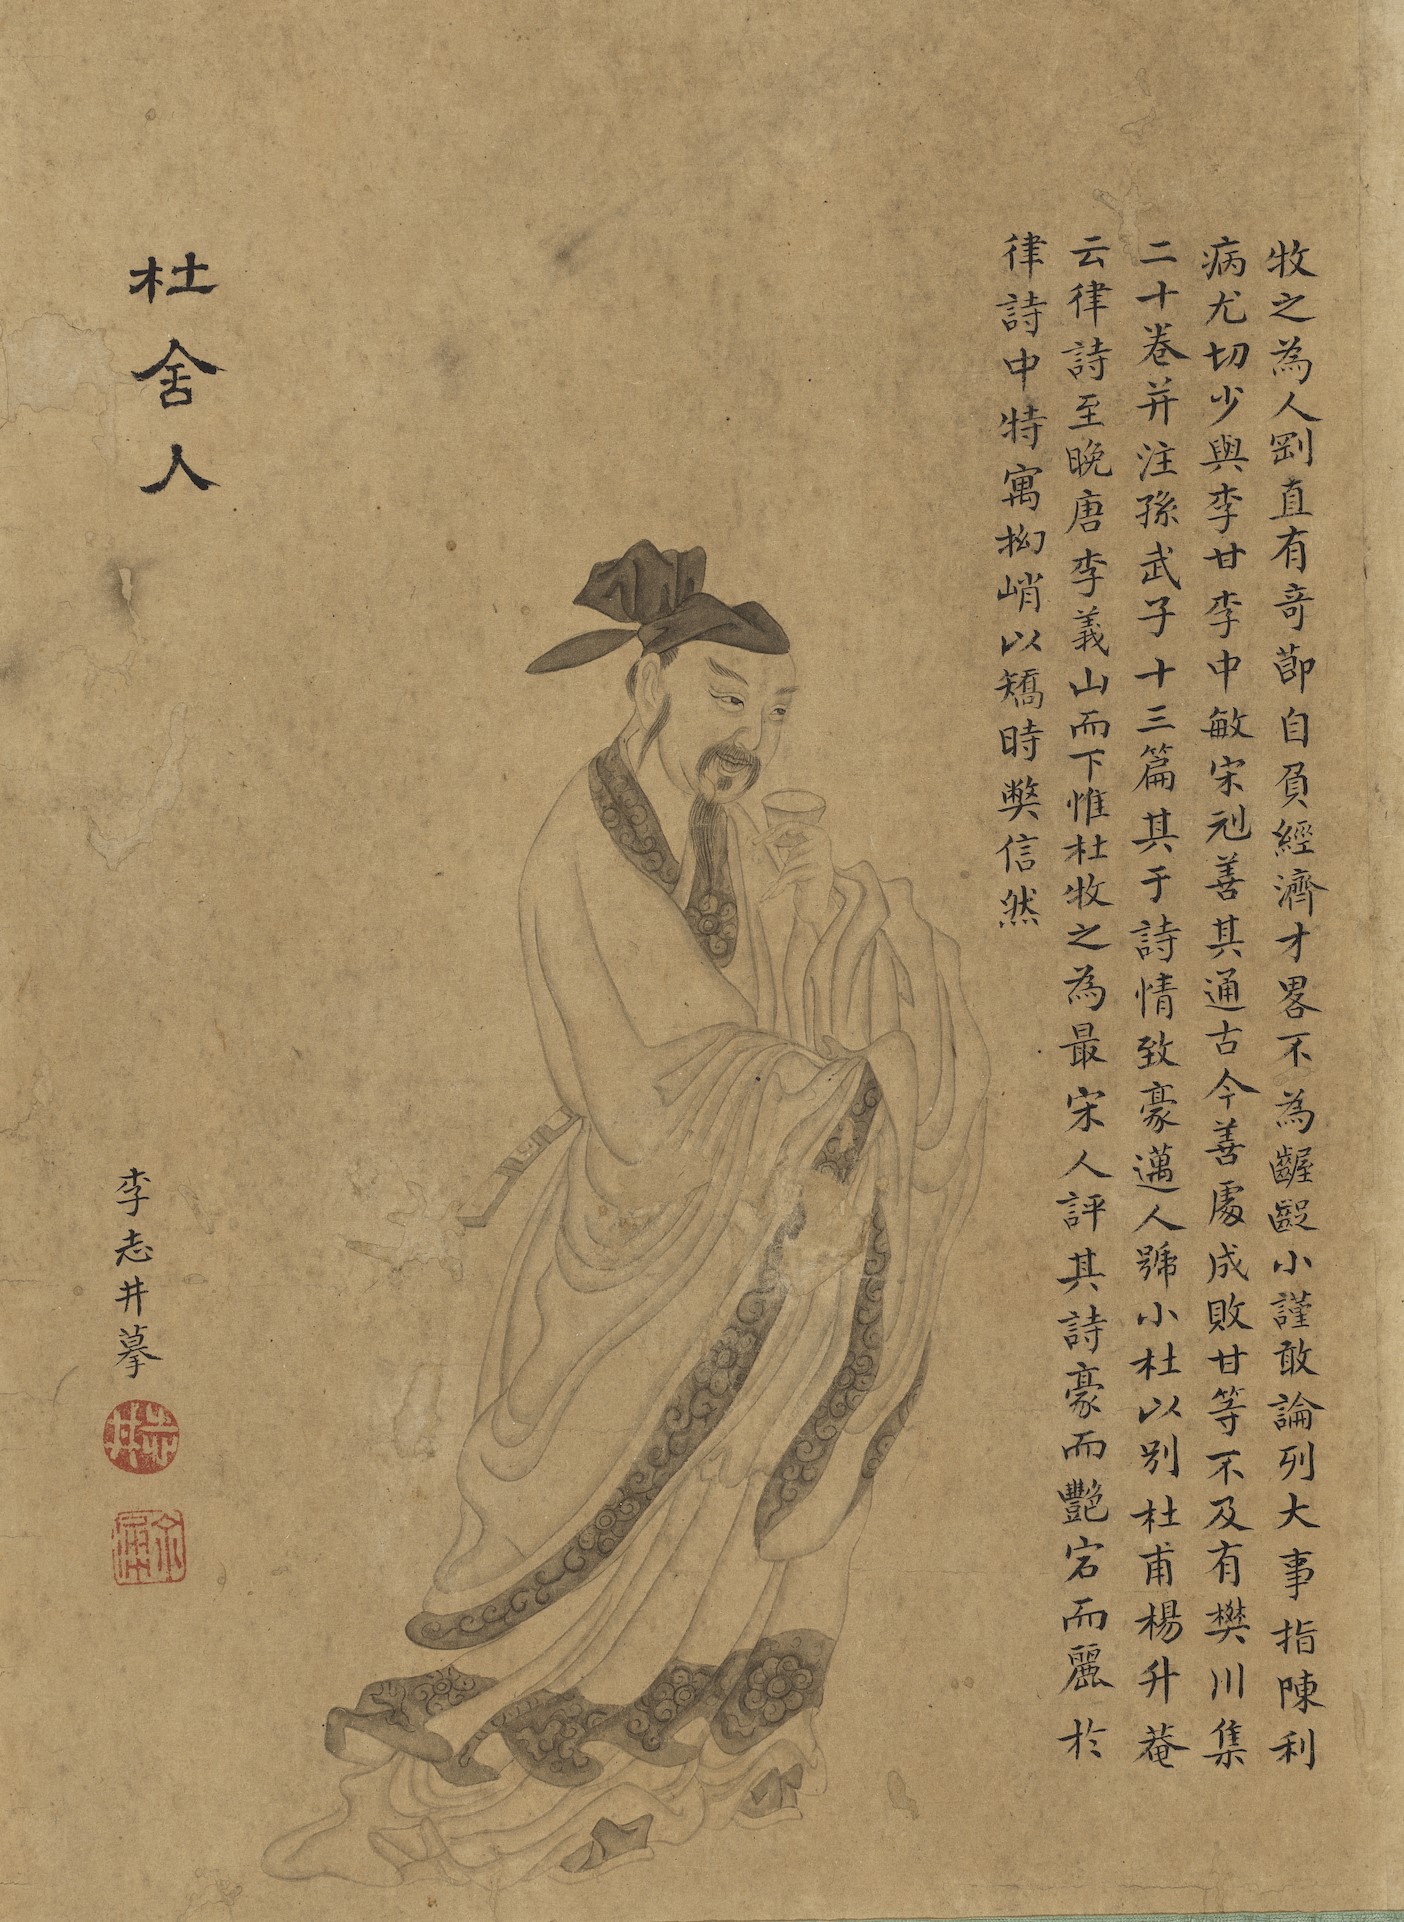 牧之為人剛直有奇節自負經濟才畧不為齷齪小謹敢論列大事指陳利
病尤切少與李甘李中敏宋刓善其通古今善處成敗甘等不及有樊川集
二十卷并注孫武子十三篇其于詩情致豪邁人號小杜以别杜甫楊升菴
云律詩至晚唐李義山而下惟杜牧之為最宋人評其詩豪而艷宕而麗於
律詩中特寓拗峭以矯時獘信然
杜舍人
李志井摹